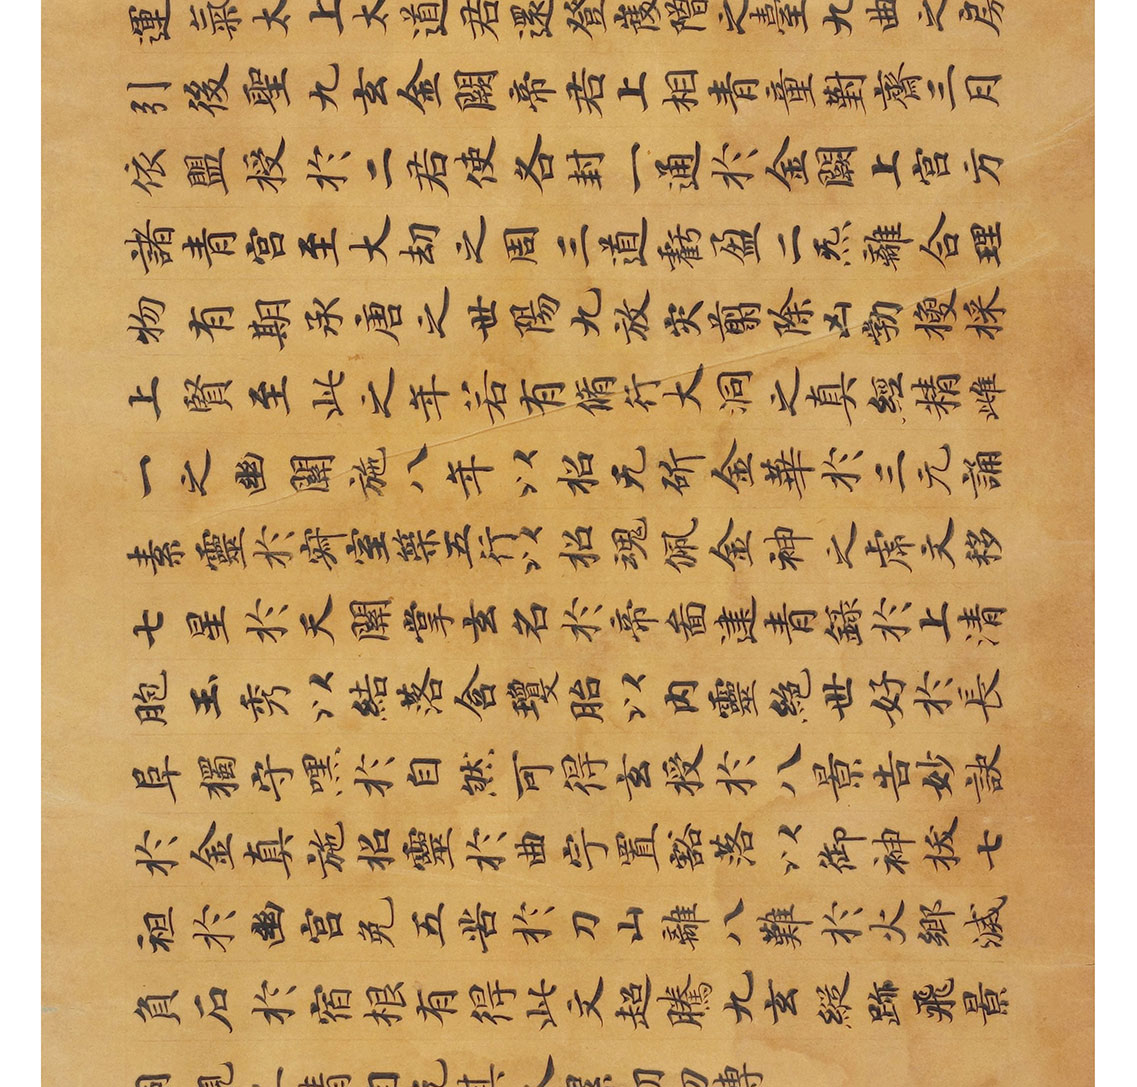 運氣太上太道君還登
引後聖九玄金闕帝君上相青童對齋三月
依盟授於二君使各封一通於金闕上宮方
諸青宮至大劫之周三道虧盈二炁離合理
物有期承唐之世陽九放灾翦除凶勃搜採
上賢至此之年若有脩行大洞之真經精雌
一之幽關施八年以招光斫金華於三元誦
素靈於寂室築五行以招魂佩金神之虎文移
七星於天關掌玄名於帝啚建青錄於上清
胞玉秀以結落含瓊胎以內靈絕世好於長
阜獨守嘿於自然可得玄授於八景告妙訣
於金真施招靈於曲宇置豁落以御神拔七
祖於幽宮免五苦於刀山離八難於火鄉滅
負石於宿根有得此文超騰九玄縱跡飛景